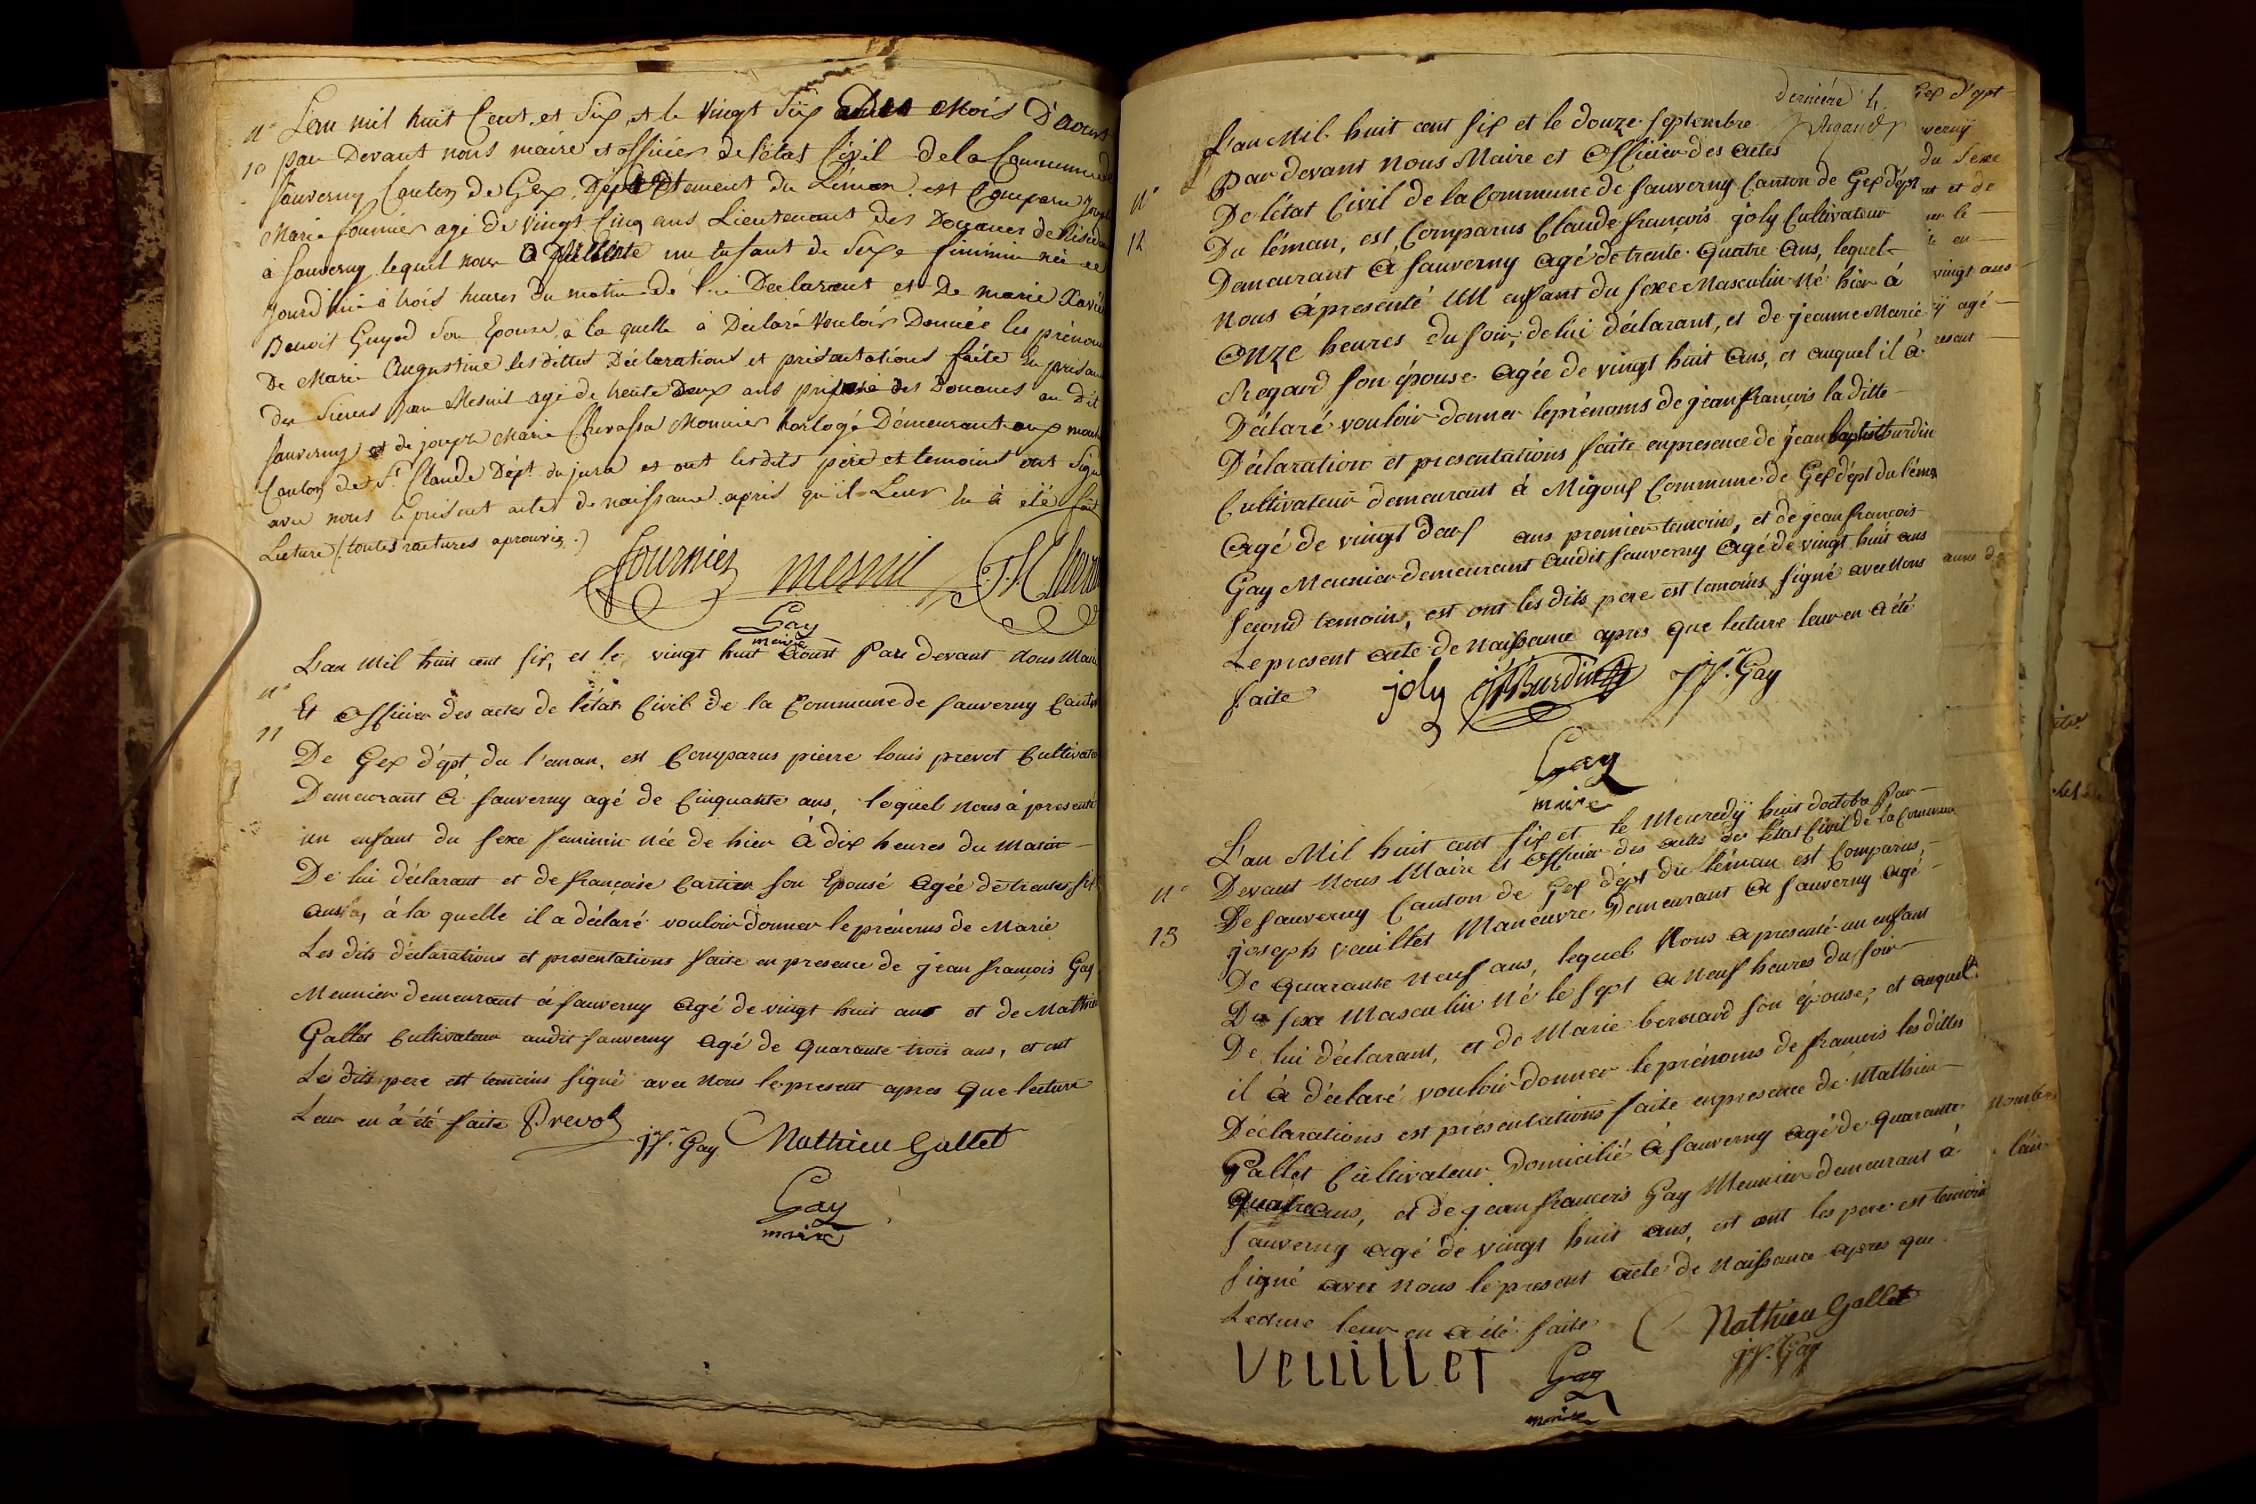 n° L'an mil huit Cent et Six et le vingt Six du Mois D'aoust
10 par Devant nous maire et officier de l'état Civil de la Commune de
Sauverny Canton de Gex, Département du Léman est Comparu Joseph
Marie fournier agé de vingt Cinq ans Lieutenant des Douanes de
à Sauverny lequel nous a présenté un Enfant de Sexe féminin née ce
jourd'hui à trois heures du matin de lui Déclarant et De marie Xavier
Benoit Guyod Son Epouse à la quelle à Déclaré vouloir Donnée les prénoms
De Marie Augustine lesdittes Déclarations et présentations faite En présence
des Sieurs Mesnil agé de trente Deux ans préposé des Douanes au Dit
Sauverny et de joseph Marie Chevassu Monnier horlogé Démeurant aux
Canton de St. Claude Dépt. du jura et ont lesdits père et temoins ont Signé
avec nous le présent actes de naissance après qu'il Leur En à été fait
Lecture (: toutes ratures aprouvés :)
fournier mesnil
Gay
maire
L'an Mil huit cent six, et le vingt huit Aoust Par devant nous Maire
n° Et officier des actes de l'état Civil de la Commune de Sauverny Canton
11 De Gex dépt du l'éman, est Comparus pierre louis prevot Cultivateur
Demeurant à Sauverny agé de Cinquante ans, lequel nous à presenté
un enfant du sexe feminin née de hier à dix heures du Matin
De lui déclarant et de françoise Carrier son Epousé agée de trente six
ans, à la quelle il a déclaré vouloir donner le prénoms de Marie
Les dits déclarations et presentations faite en presence de jean françois Gay
Meunier demeurant à Sauverny agé de vingt huit ans et de Mathieu
Gallet Cultivateur audit Sauverny agé de quarante trois ans, et ont
Les dits pere est temoins signé avec nous le present apres que lecture
Leur en à été faite Prevot
jf. Gay Mathieu Gallet
Gay
maire
Gex d'épt
L'an Mil huit cent six et le douze septembre
Par devant Nous Maire et Officier des actes
n° De l'état Civil de la Commune de Sauverny Canton de Gex dépt
12 Du léman, est Comparus Claude françois joly Cultivateur
Demeurant à Sauverny agé de trente quatre ans, lequel
Nous à presenté un enfant du sexe Masculin né hier à
Onze heures du soir, de lui déclarant, et de jeanne Marie
Regard son épouse agée de vingt huit ans, et auquel il à
Déclaré vouloir donner le prénoms de jean françois la ditte
Déclaration et presentations faite en presence de jean baptist burdin
Cultivateur demeurant à Migoux Commune de Gex dépt du léman
agé de vingt deux ans premier temoins, et de jean francois
Gay Meunier demeurant audit Sauverny agé de vingt huit ans
Second temoins, est ont les dits pere est temoins signé avec nous
Le present acte de Naissance apres que lecture leur en à été
faite joly JBBurdin jf. Gay
Gay
maire
L'an Mil huit cent six et le Mercredÿ huit doctobre Par
n° Devant Nous Maire et officier des actes de l'état Civil de la Commune
De Sauverny Canton de Gex dépt du léman est Comparus,
13 joseph vuillet Maneuvre Demeurant à Sauverny agé
De quarante neuf ans, lequel Nous à presenté un enfant
Du sexe Masculin Né le sept à Neuf heures du soir
De lui déclarant, et de Marie bernard son épouse, et auquel
il à déclaré vouloir donner le prénoms de francois les dittes
Déclarations est présentations faite en presence de Mathieu
Gallet Cultivateur Domicilié à Sauverny agé de quarante
quatre ans, et de jean francois Gay Meunier demeurant à
Sauverny agé de vingt huit ans, est ont les pere est temoin
signé avec nous le present acte de Naissance apres que
Lecture leur en à été faite
Mathieu Gallet
jf. Gay
veuillet Gay
maire